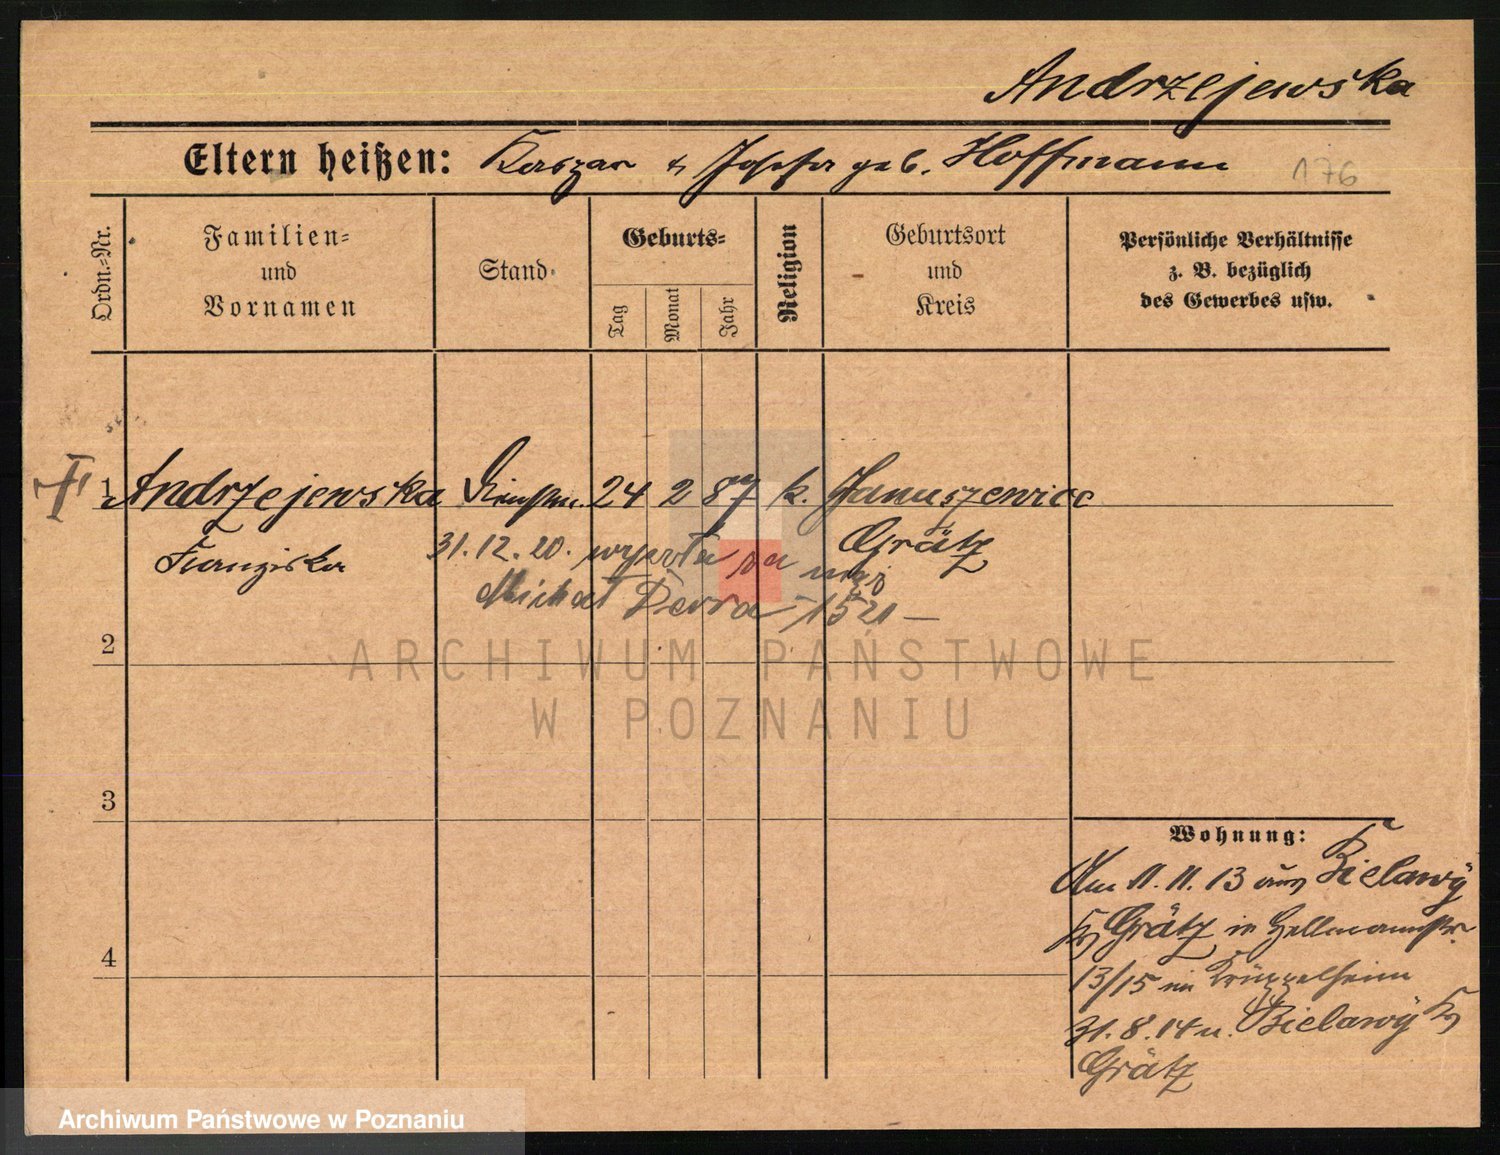 Andrzejewska
Eltern heißen: Kaszar & Josefa geb. Hoffmann 176
Ordn.-Nr.
Familien- und Vornamen
Stand
Geburts-
Tag
Monat
Jahr
Religion
Geburtsort und Kreis
Persönliche Verhältnisse
z. B. bezüglich
des Gewerbes usw.
1 Andrzejewska 24 2 87 k. Januszewice
Franziska
Grätz
31.12.20. wyszła za mąż
Michał Derra 1521 –
2
ARCHIWUM PAŃSTWOWE
W POZNANIU
3
Wohnung:
Am 11.11.13 aus Bielawÿ
Kr Grätz in Hellmannstr.
4
13/15 im Krüppelheim
31.8.14 n. Bielawÿ Kr
Grätz
Archiwum Państwowe w Poznaniu